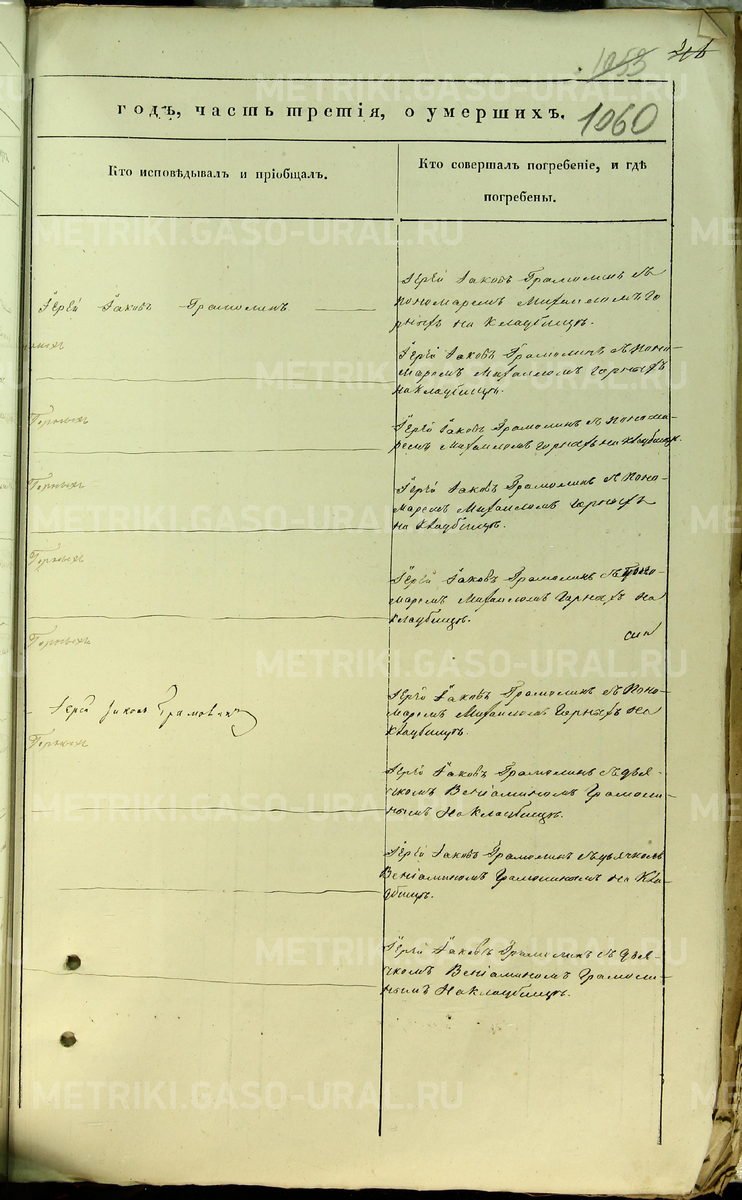 1053
1060
годъ, часть третія, о умершихъ.
Кто исповѣдывалъ и пріобщалъ.
Кто совершалъ погребеніе, и гдѣ
погребены.
Іерей Іаковъ Грамолинъ
Іерей Іаковъ Грамолинъ съ
пономаремъ Михаиломъ Го
рныхъ на кладбищѣ.
Іерей Іаковъ Грамолинъ съ поно-
маремъ Михаиломъ Горныхъ
на кладбищѣ.
Горныхъ
Іерей Іаковъ Грамолинъ съ понома-
ремъ Михаиломъ Горныхъ на кладбищѣ.
Горныхъ
Іерей Іаковъ Грамолинъ съ поно-
маремъ Михаиломъ Горныхъ
на кладбищѣ.
Горныхъ
Іерей Іаковъ Грамолинъ съ поно-
маремъ Михаиломъ Горныхъ на
кладбищѣ.
Горныхъ
Іерей Іаковъ Грамолинъ
Іерей Іаковъ Грамолинъ съ поно-
маремъ Михаиломъ Горныхъ на
кладбищѣ.
Горныхъ
Іерей Іаковъ Грамолинъ съ дья-
чкомъ Веніаминомъ Грамоли-
нымъ на кладбищѣ.
Іерей Іаковъ Грамолинъ съ дьячкомъ
Веніаминомъ Грамолинымъ на кла
дбищѣ.
Іерей Іаковъ Грамолинъ съ дья-
чкомъ Веніаминомъ Грамоли-
нымъ на кладбищѣ.
METRIKI.GASO-URAL.RU